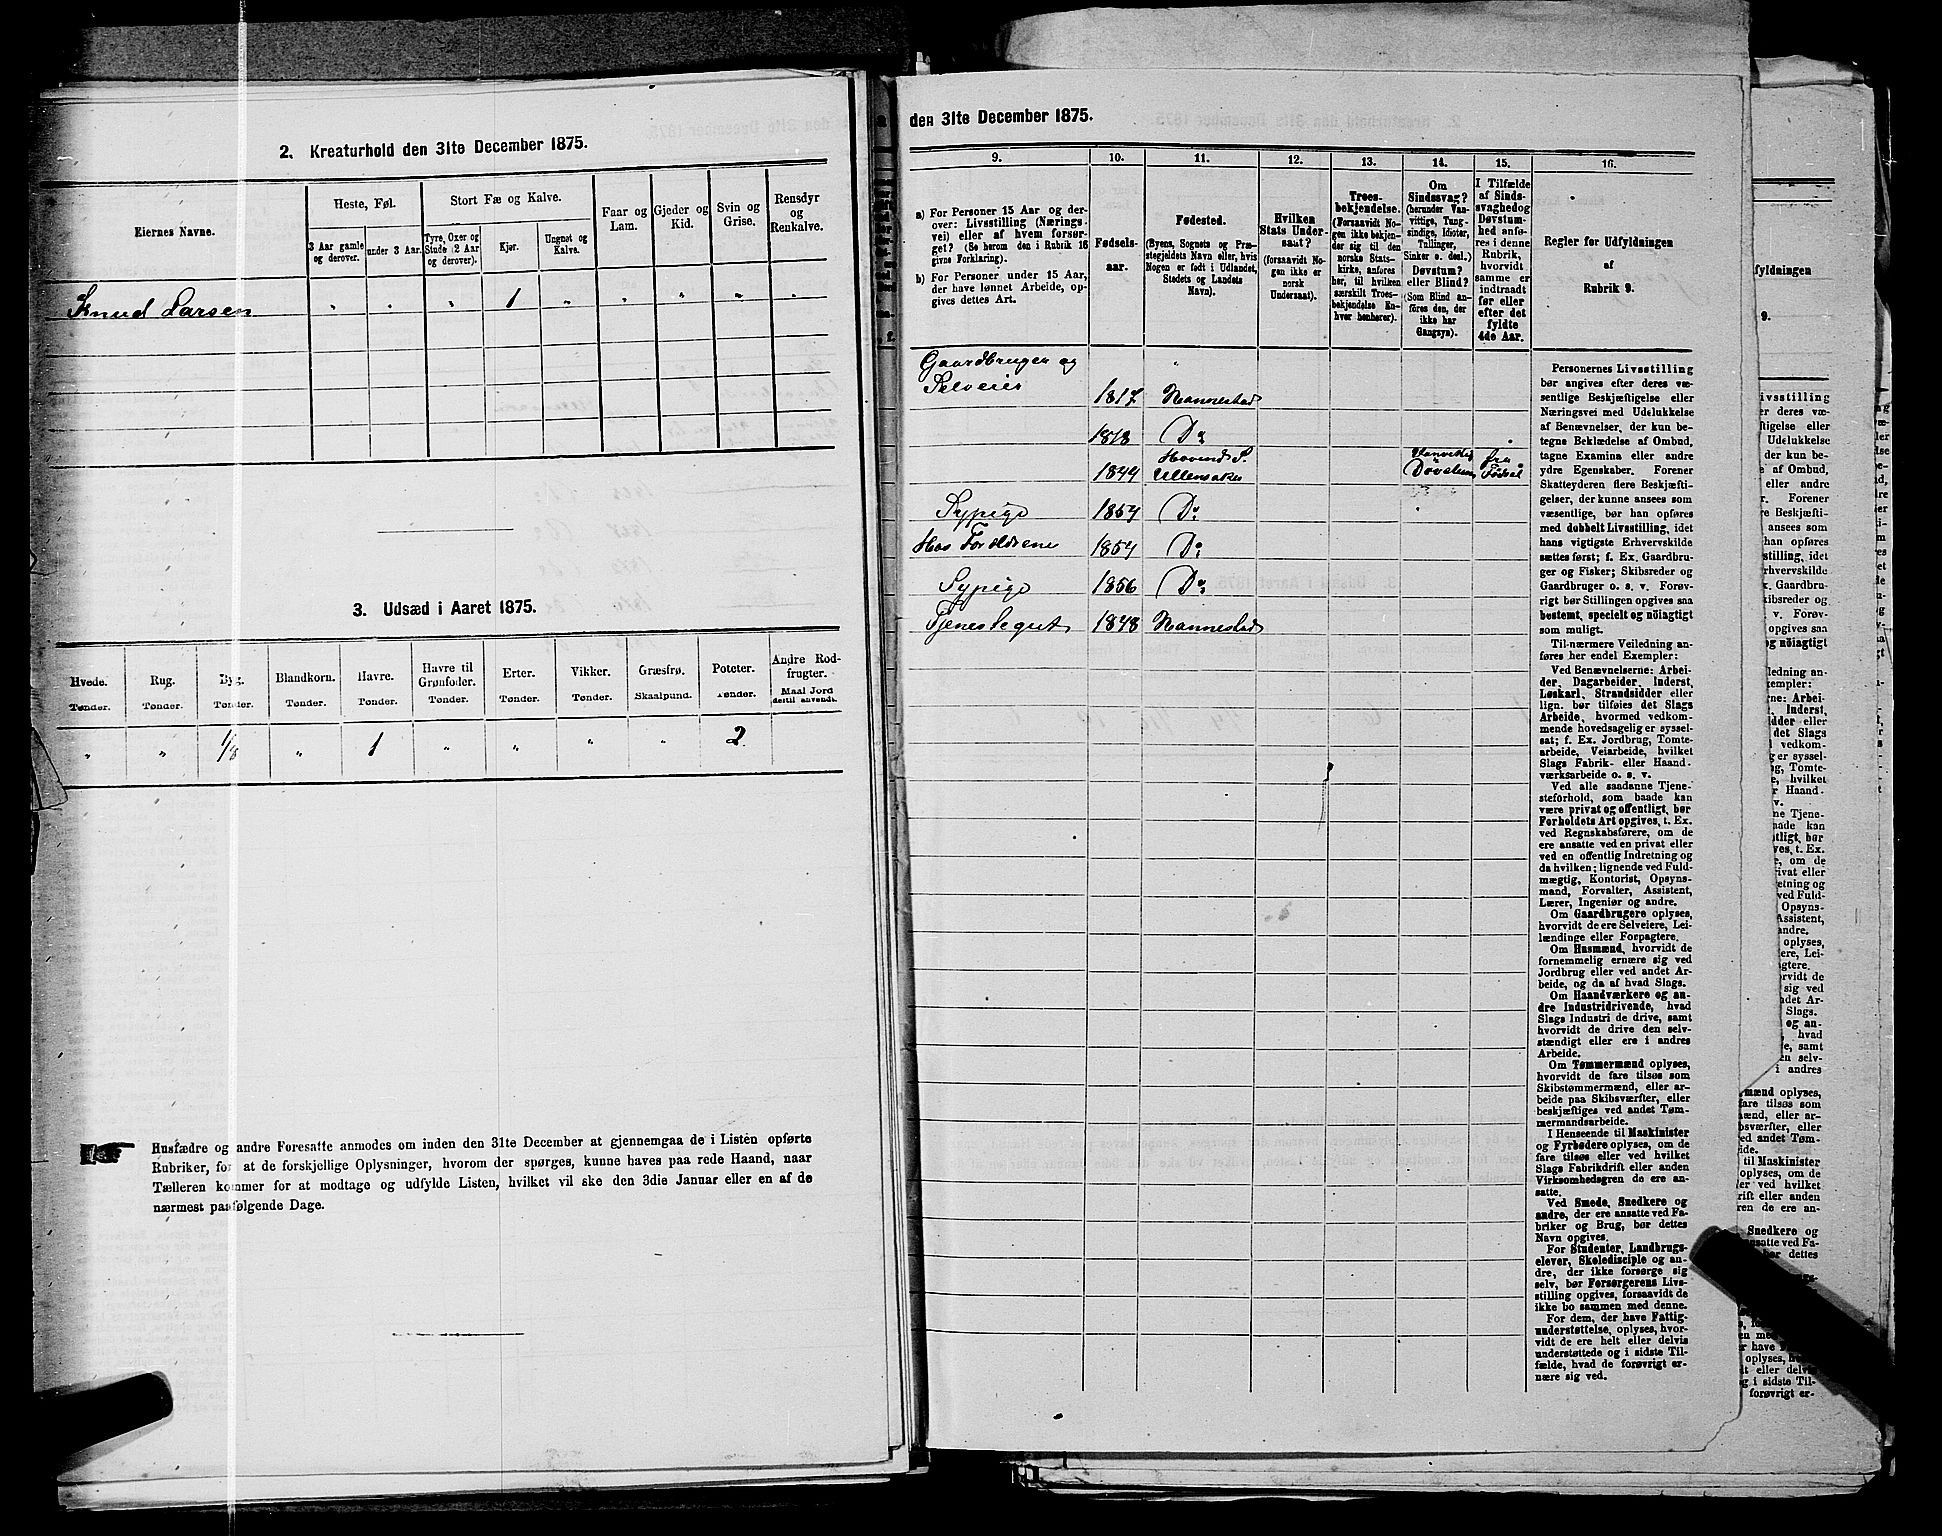 2. Kreaturhold den 31te December 1875.
Eiernes Navne.
Heste, Føl.
Stort Fæ og Kalve.
Faar og Lam.
Gjeder og Kid.
Svin og Grise.
Rensdyr og Renkalve.
3 Aar gamle og derover.
under 3 Aar.
Tyre, Oxer og Stude (2 Aar og derover).
Kjør.
Ungnøt og Kalve.
Knud Larsen " " " 1 " " " " "
3. Udsæd i Aaret 1875.
Hvede. Rug. Byg. Blandkorn. Havre. Havre til Grønfoder. Erter. Vikker. Græsfrø. Poteter. Andre Rodfrugter.
Tønder. Tønder. Tønder. Tønder. Tønder. Tønder. Tønder. Tønder. Skaalpund. Tønder. Maal Jord dertil anvendt.
" " 1/8 " 1 " " " " 2
Husfædre og andre Foresatte anmodes om inden den 31te December at gjennemgaa de i Listen opførte
Rubriker, for at de forskjellige Oplysninger, hvorom der spørges, kunne haves paa rede Haand, naar
Tælleren kommer for at modtage og udfylde Listen, hvilket vil ske den 3die Januar eller en af de
nærmest paafølgende Dage.
den 31te December 1875.
9. 10. 11. 12. 13. 14. 15. 16.
a) For Personer 15 Aar og derover:
Livsstilling (Næringsvei)
eller af hvem forsørget?
(Se herom den i Rubrik 16
givne Forklaring).
b) For Personer under 15 Aar,
der have lønnet Arbeide, opgives
dettes Art.
Fødselsaar.
Fødested.
(Byens, Sognets og Præstegjeldets
Navn eller, hvis
Nogen er født i Udlandet,
Stedets og Landets
Navn).
Hvilken
Stats Undersaat?
(forsaavidt Nogen
ikke er
norsk
Undersaat).
Troesbekjendelse.
(Forsaavidt Nogen
ikke bekjender
sig til den
norske Statskirke,
anføres
her, til hvilken
særskilt Troesbekjendelse
Enhver
henhører).
Om
Sindssvag?
(herunder Vanvittige,
Tungsindige,
Idioter,
Tullinger,
Sinker o. desl.)
Døvstum?
eller Blind?
(Som Blind anføres
den, der
ikke har
Gangsyn).
I Tilfælde
af Sindssvaghed
og
Døvstumhed
anføres
i denne
Rubrik,
hvorvidt
samme er
indtraadt
før eller
efter det
fyldte
4de Aar.
Regler for Udfyldningen
af
Rubrik 9.
Gaardbruger og
Selveier 1817 Nannestad
1818 Do
1844 Hovind S. Ullensaker Vanvittig Døvstum fra Fødsel
Sypige 1854 Do
Hos Forældrene 1854 Do
Sypige 1856 Do
Tjenestegut 1848 Nannestad
Personernes Livsstilling
bør angives efter deres væsentlige
Beskjæftigelse eller
Næringsvei med Udelukkelse
af Benævnelser, der kun betegne
Beklædelse af Ombud,
tagne Examina eller andre
ydre Egenskaber. Forener
Skatteyderen flere Beskjæftigelser,
der kunne ansees som
væsentlige, bør han opføres
med dobbelt Livsstilling, idet
hans vigtigste Erhvervskilde
sættes først; f. Ex. Gaardbruger
og Fisker; Skibsreder og
Gaardbruger o. s. v. Forøvrigt
bør Stillingen opgives saa
bestemt, specielt og nöiagtigt
som muligt.
Til nærmere Veiledning anføres
her endel Exempler:
Ved Benævnelserne: Arbeider,
Dagarbeider, Inderst,
Løskarl, Strandsidder eller
lign. bør tilføies det Slags
Arbeide, hvormed vedkommende
hovedsagelig er sysselsat;
f. Ex. Jordbrug, Tomtearbeide,
Veiarbeide, hvilket
Slags Fabrik- eller Haandværksarbeide
o. s. v.
Ved alle saadanne Tjenesteforhold,
som baade kan
være privat og offentligt, bør
Forholdets Art opgives, t. Ex.
ved Regnskabsførere, om de
ere ansatte ved en privat eller
ved en offentlig Indretning og
da hvilken; lignende ved Fuldmægtig,
Kontorist, Opsynsmand,
Forvalter, Assistent,
Lærer, Ingeniør og andre.
Om Gaardbrugere oplyses,
hvorvidt de ere Selveiere, Leilændinge
eller Forpagtere.
Om Husmænd, hvorvidt de
fornemmelig ernære sig ved
Jordbrug eller ved andet Arbeide,
og da af hvad Slags.
Om Haandværkere og andre
Industridrivende, hvad
Slags Industri de drive, samt
hvorvidt de drive den selvstændigt
eller ere i andres
Arbeide.
Om Tømmermænd oplyses,
hvorvidt de fare tilsøs som
Skibstømmermænd, eller arbeide
paa Skibsværfter, eller
beskjæftiges ved andet Tømmermandsarbeide.
I Henseende til Maskinister
og Fyrbødere oplyses, om de
fare tilsøs eller ved hvilket
Slags Fabrikdrift eller anden
Virksomhedsgren de ere ansatte.
Ved Smede, Snedkere og
andre, der ere ansatte ved Fabriker
og Brug, bør dettes
Navn opgives.
For Studenter, Landbrugselever,
Skoledisciple og andre,
der ikke forsørge sig
selv, bør Forsørgerens Livsstilling
opgives, forsaavidt de
ikke bo sammen med denne.
For dem, der have Fattigunderstøttelse,
oplyses, hvorvidt
de ere helt eller delvis
understøttede og i sidste Tilfælde,
hvad de forøvrigt ernære
sig ved.